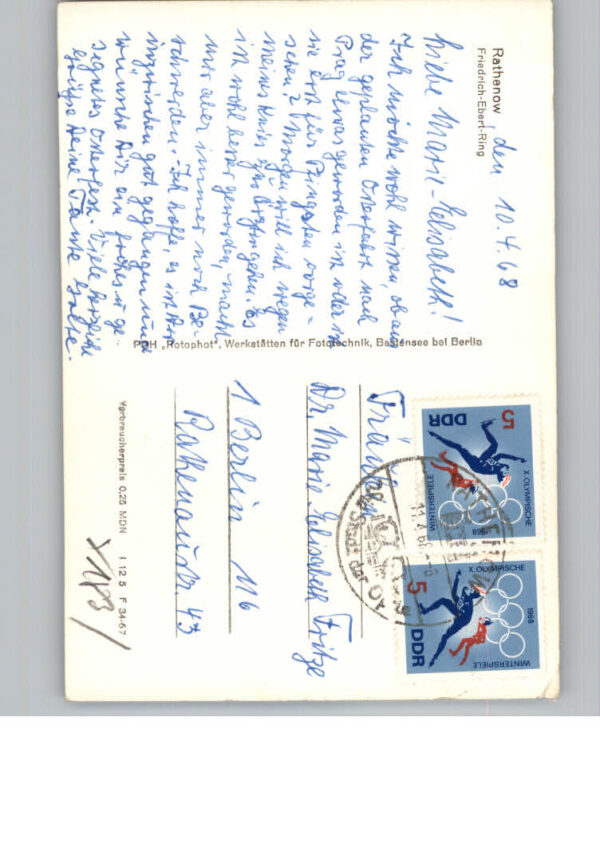 Rathenow
Friedrich-Ebert-Ring
den 10.4.68
Liebe Marie-Elisabeth!
Ich möchte wohl wissen, ob aus
der geplanten Osterfahrt nach
Prag etwas geworden ist oder ob
sie erst für Pfingsten vorge=
sehen? Morgen will ich wegen
meines Knies zum Arzt gehen. Es
ist wohl besser geworden, macht
mir aber immer noch Be-
schwerden. Ich hoffe, es ist Dir
inzwischen gut gegangen und
wünsche Dir ein frohes u. ge-
segnetes Osterfest. Viele herzliche
Grüße Deine Tante
PGH „Rotophot", Werkstätten für Fototechnik, Bestensee bei Berlin
5
DDR
X. OLYMPISCHE
WINTERSPIELE
1968
5
DDR
X. OLYMPISCHE
WINTERSPIELE
1968
RATHENOW
11.4.68
Stadt der
Fräulein
Dr. Marie Elisabeth Fritze
1 Berlin 116
Rathenaustr. 43
Verbraucherpreis 0,25 MDN I 12 5 F 34-67